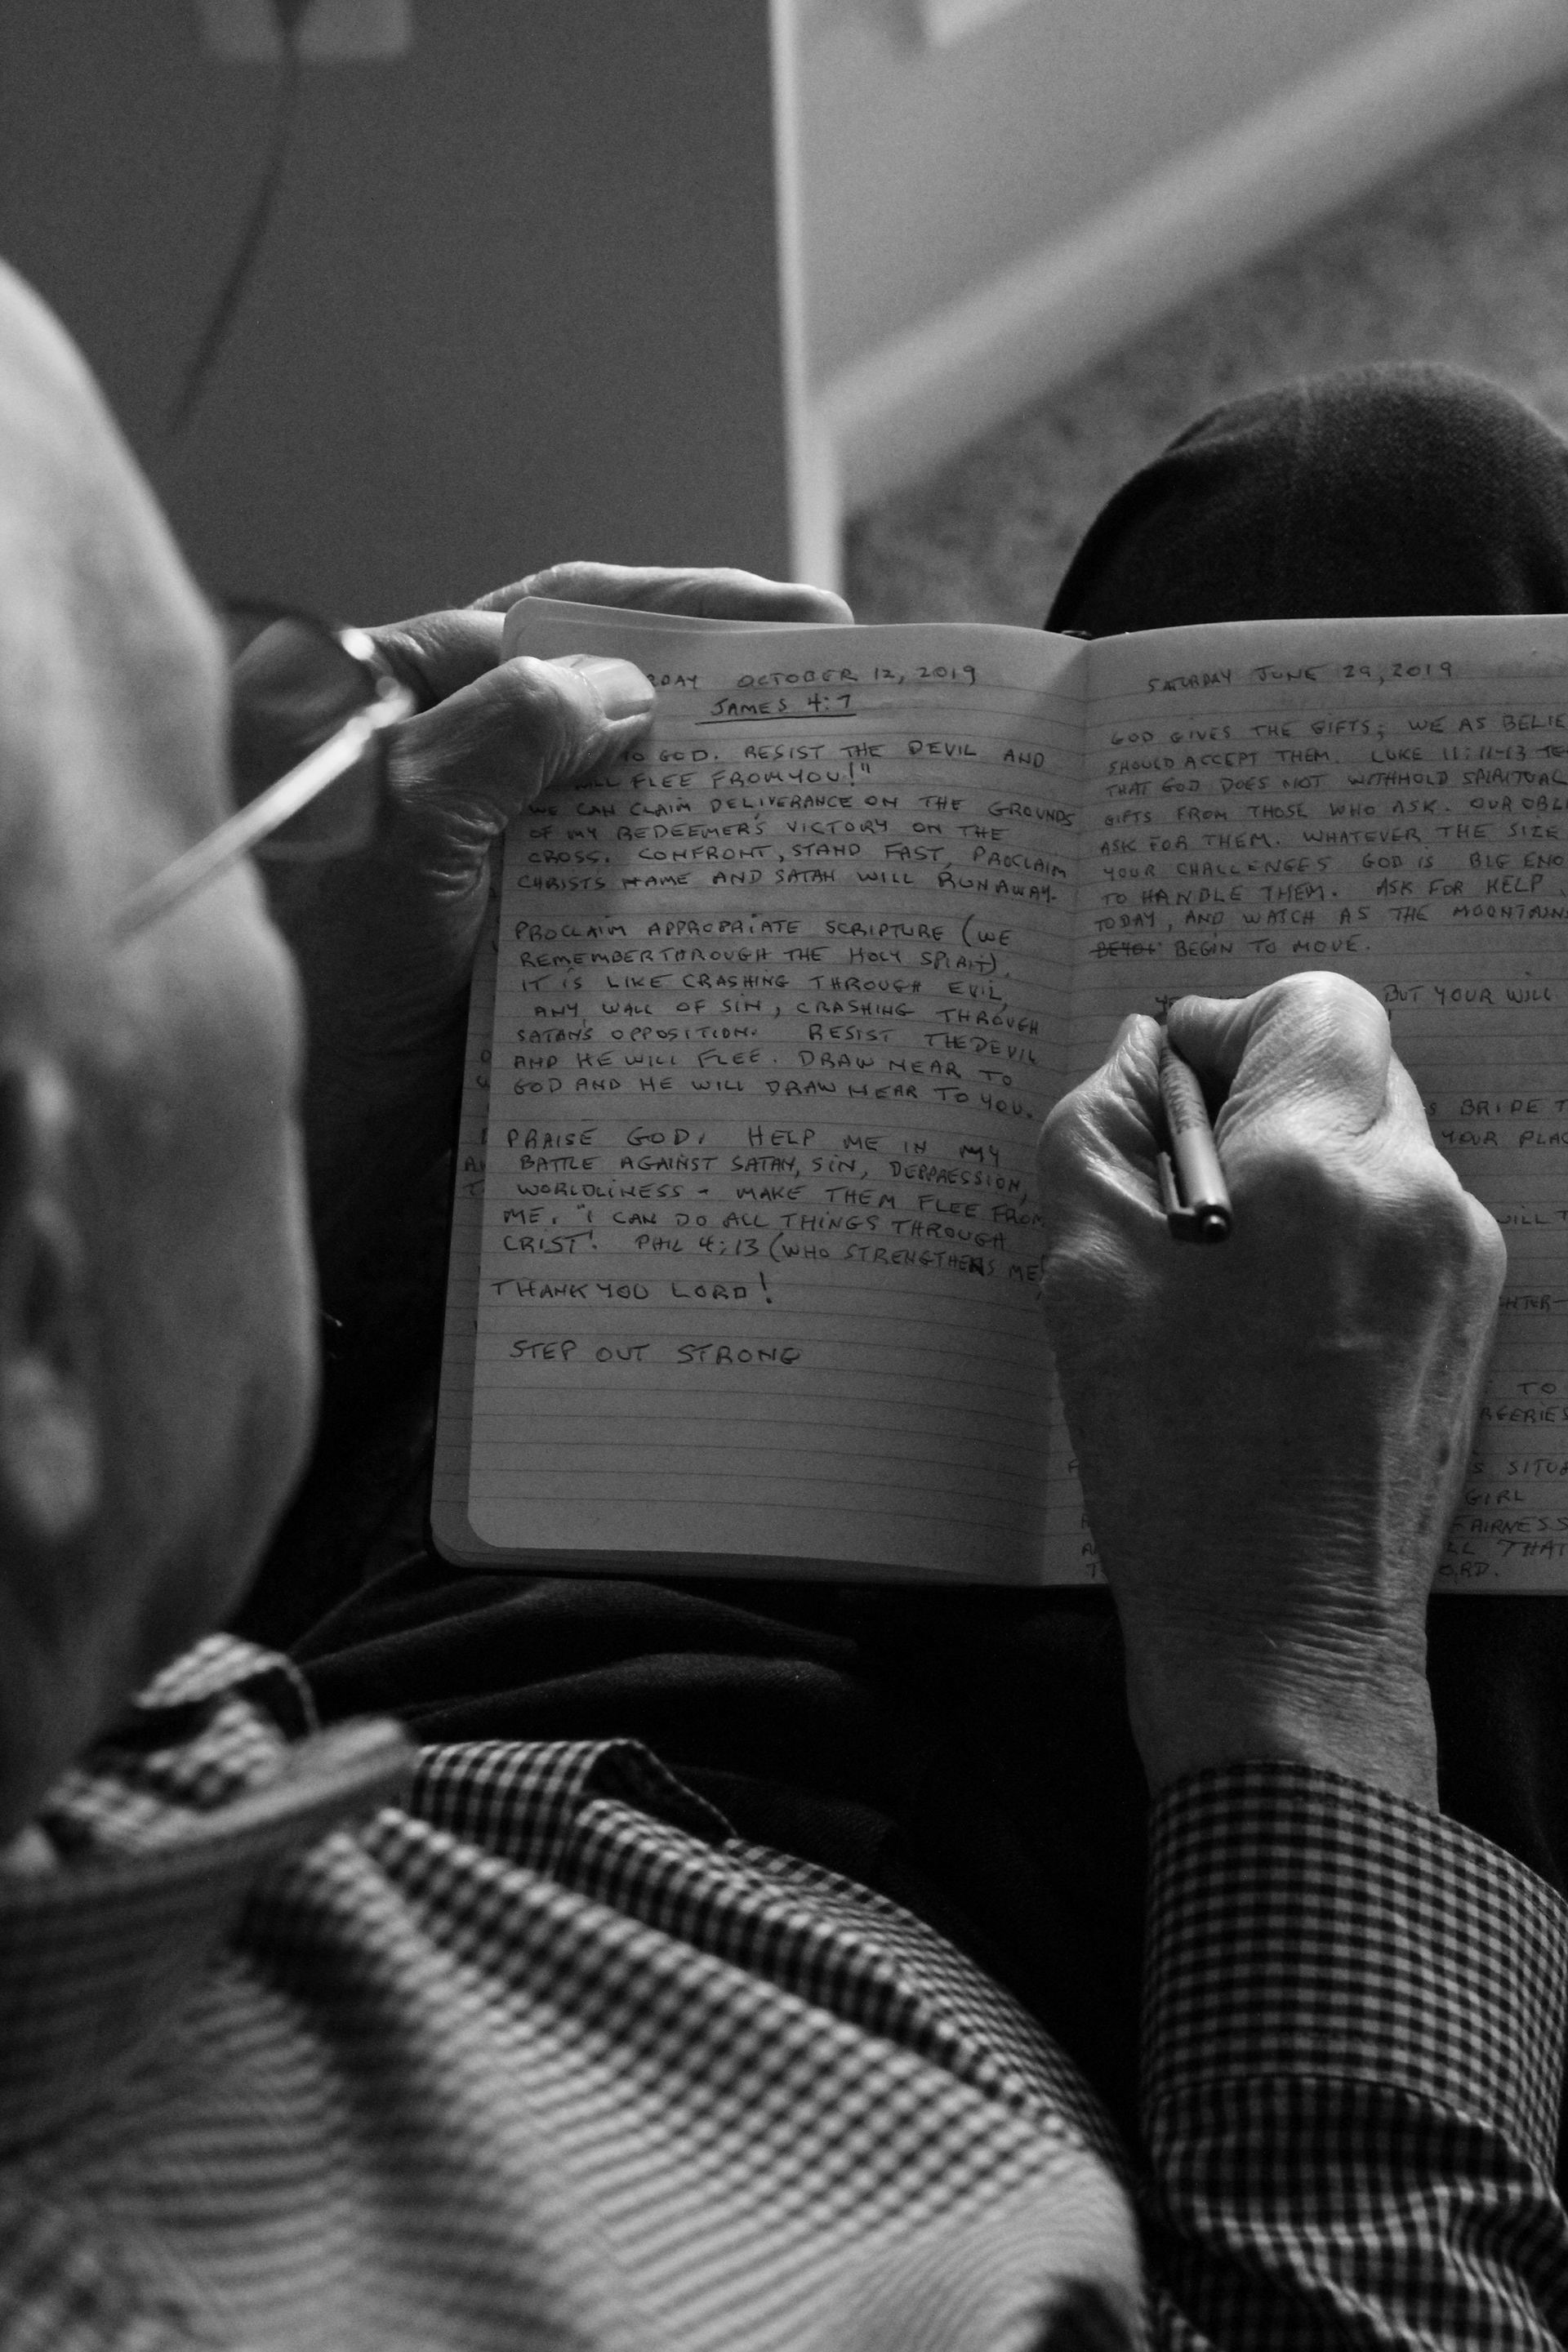 RDAY OCTOBER 12, 2019
JAMES 4:7
TO GOD. RESIST THE DEVIL AND
WILL FLEE FROM YOU!"
WE CAN CLAIM DELIVERANCE ON THE GROUNDS
OF MY REDEEMER'S VICTORY ON THE
CROSS. CONFRONT, STAND FAST, PROCLAIM
CHRISTS NAME AND SATAN WILL RUN AWAY.
PROCLAIM APPROPRIATE SCRIPTURE (WE
REMEMBER THROUGH THE HOLY SPIRIT).
IT IS LIKE CRASHING THROUGH EVIL,
ANY WALL OF SIN, CRASHING THROUGH
SATAN'S OPPOSITION. RESIST THE DEVIL
AND HE WILL FLEE. DRAW NEAR TO
GOD AND HE WILL DRAW NEAR TO YOU.
PRAISE GOD, HELP ME IN MY
BATTLE AGAINST SATAN, SIN, DEPRESSION,
WORLDLINESS - MAKE THEM FLEE FROM
ME. "I CAN DO ALL THINGS THROUGH
CRIST! PHIL 4:13 (WHO STRENGTHENS ME)
THANK YOU LORD!
STEP OUT STRONG
SATURDAY JUNE 29, 2019
GOD GIVES THE GIFTS; WE AS BELIE
SHOULD ACCEPT THEM. LUKE 11:11-13 TE
THAT GOD DOES NOT WITHHOLD SPIRITUAL
GIFTS FROM THOSE WHO ASK. OUR OBLI
ASK FOR THEM. WHATEVER THE SIZE
YOUR CHALLENGES GOD IS BIG ENO
TO HANDLE THEM. ASK FOR HELP
TODAY, AND WATCH AS THE MOUNTAINS
BEGIN TO MOVE.
BUT YOUR WILL
S BRIDE T
YOUR PLAC
WILL T
HTER-
TO
RGERIES
S SITUA
GIRL
FAIRNESS
LL THAT
ORD.